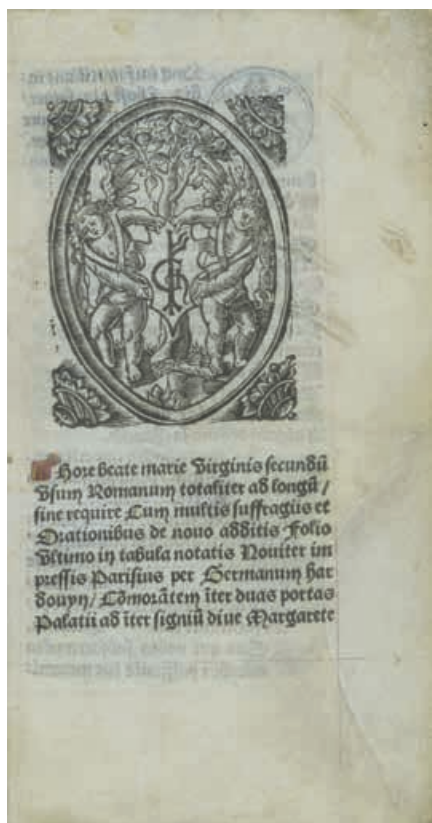 Hore beate marie Virginis secundū
Vsum Romanum totaliter ad longū /
sine require Cum multis suffragiis et
Orationibus de nouo additis Folio
Vltimo in tabula notatis Nouiter im
pressis Parisius per Germanum har
douyn / Cōmorātem īter duas portas
Palatii ad īter signiū diue Margarete